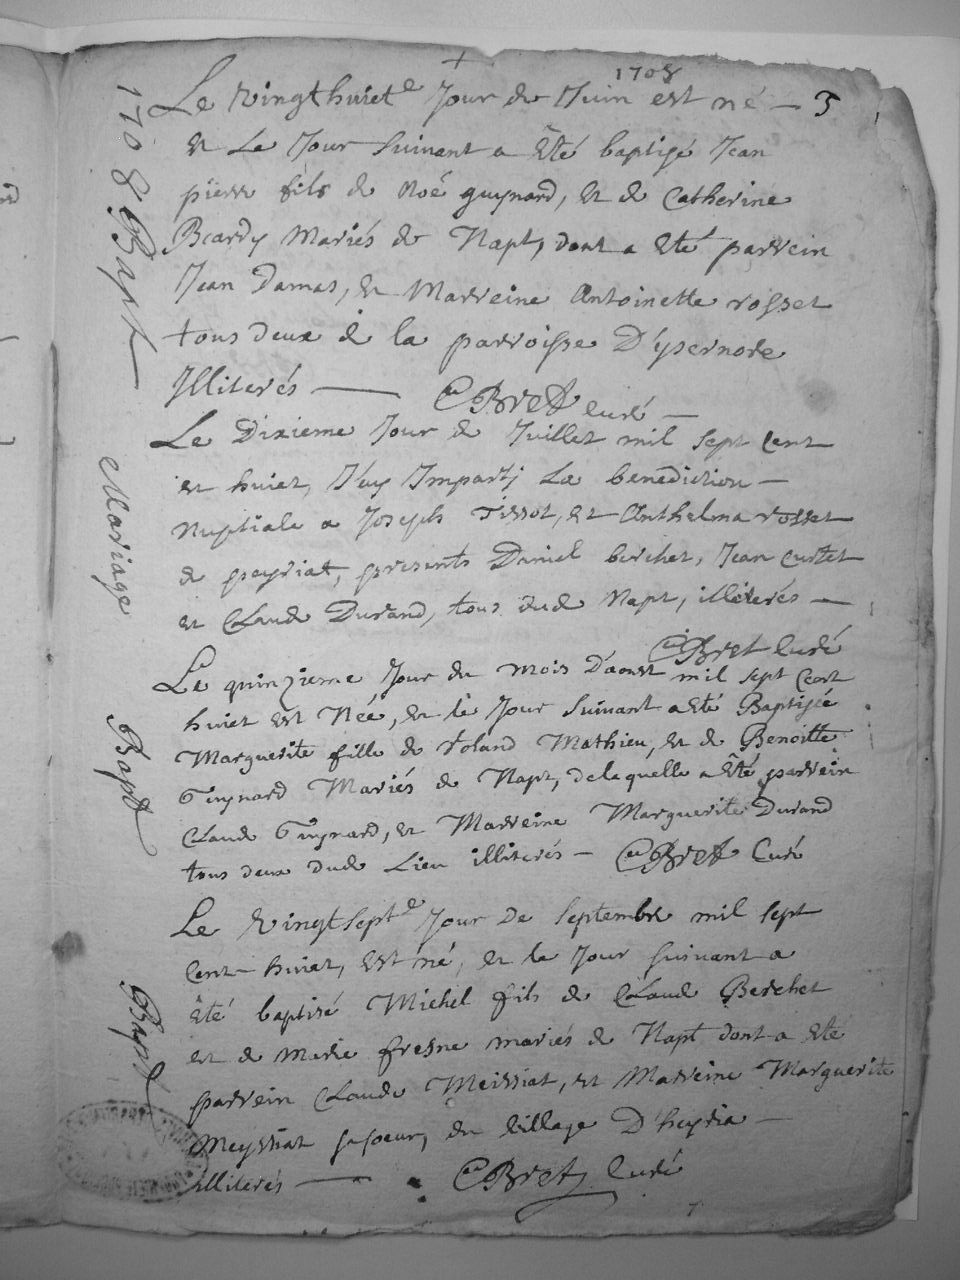 1708
3
1708 Bapt
Le vingthuiet.e Jour de Juin est né —
et Le Jour suivant a été baptisé Jean
pierre fils de Noé guynard, et de Catherine
Beardy Mariés de Napt, dont a été parrein
Jean Damas, et Marreine Antoinette rosset
tous deux de la parroisse D'ysernore
Illiterés — Bret Curé —
Mariage
Le Dixieme Jour de Juillet mil sept Cent
et huiet, J'ay Imparti La benediction —
Nuptiale a Joseph Tissot, et Anthelma rosset
de peyriat, presents Daniel berchet, Jean Curtet
et Claude Durand, tous dud Napt, illiterés —
Bret Curé
Bapt
Le quinzieme Jour du mois D'aoust mil sept Cent
huiet est Née, et le Jour suivant a été Baptisée
Marguerite fille de roland Mathieu, et de Benoitte
Guynard Mariés de Napt, de laquelle a été parrein
Claude Guynard, et Marreine Marguerite Durand
tous deux dud Lieu illiterés — Bret Curé
Bapt
Le vingtsept.e Jour De Septembre mil sept
Cent huiet, est né, et le Jour suivant a
été baptisé Michel fils de Claude Berchet
et de Marie fresne mariés de Napt dont a été
parrein Claude Meissiat, et Marreine Marguerite
Meyssiat sa soeur, du village D'heyria —
illiterés — Bret Curé